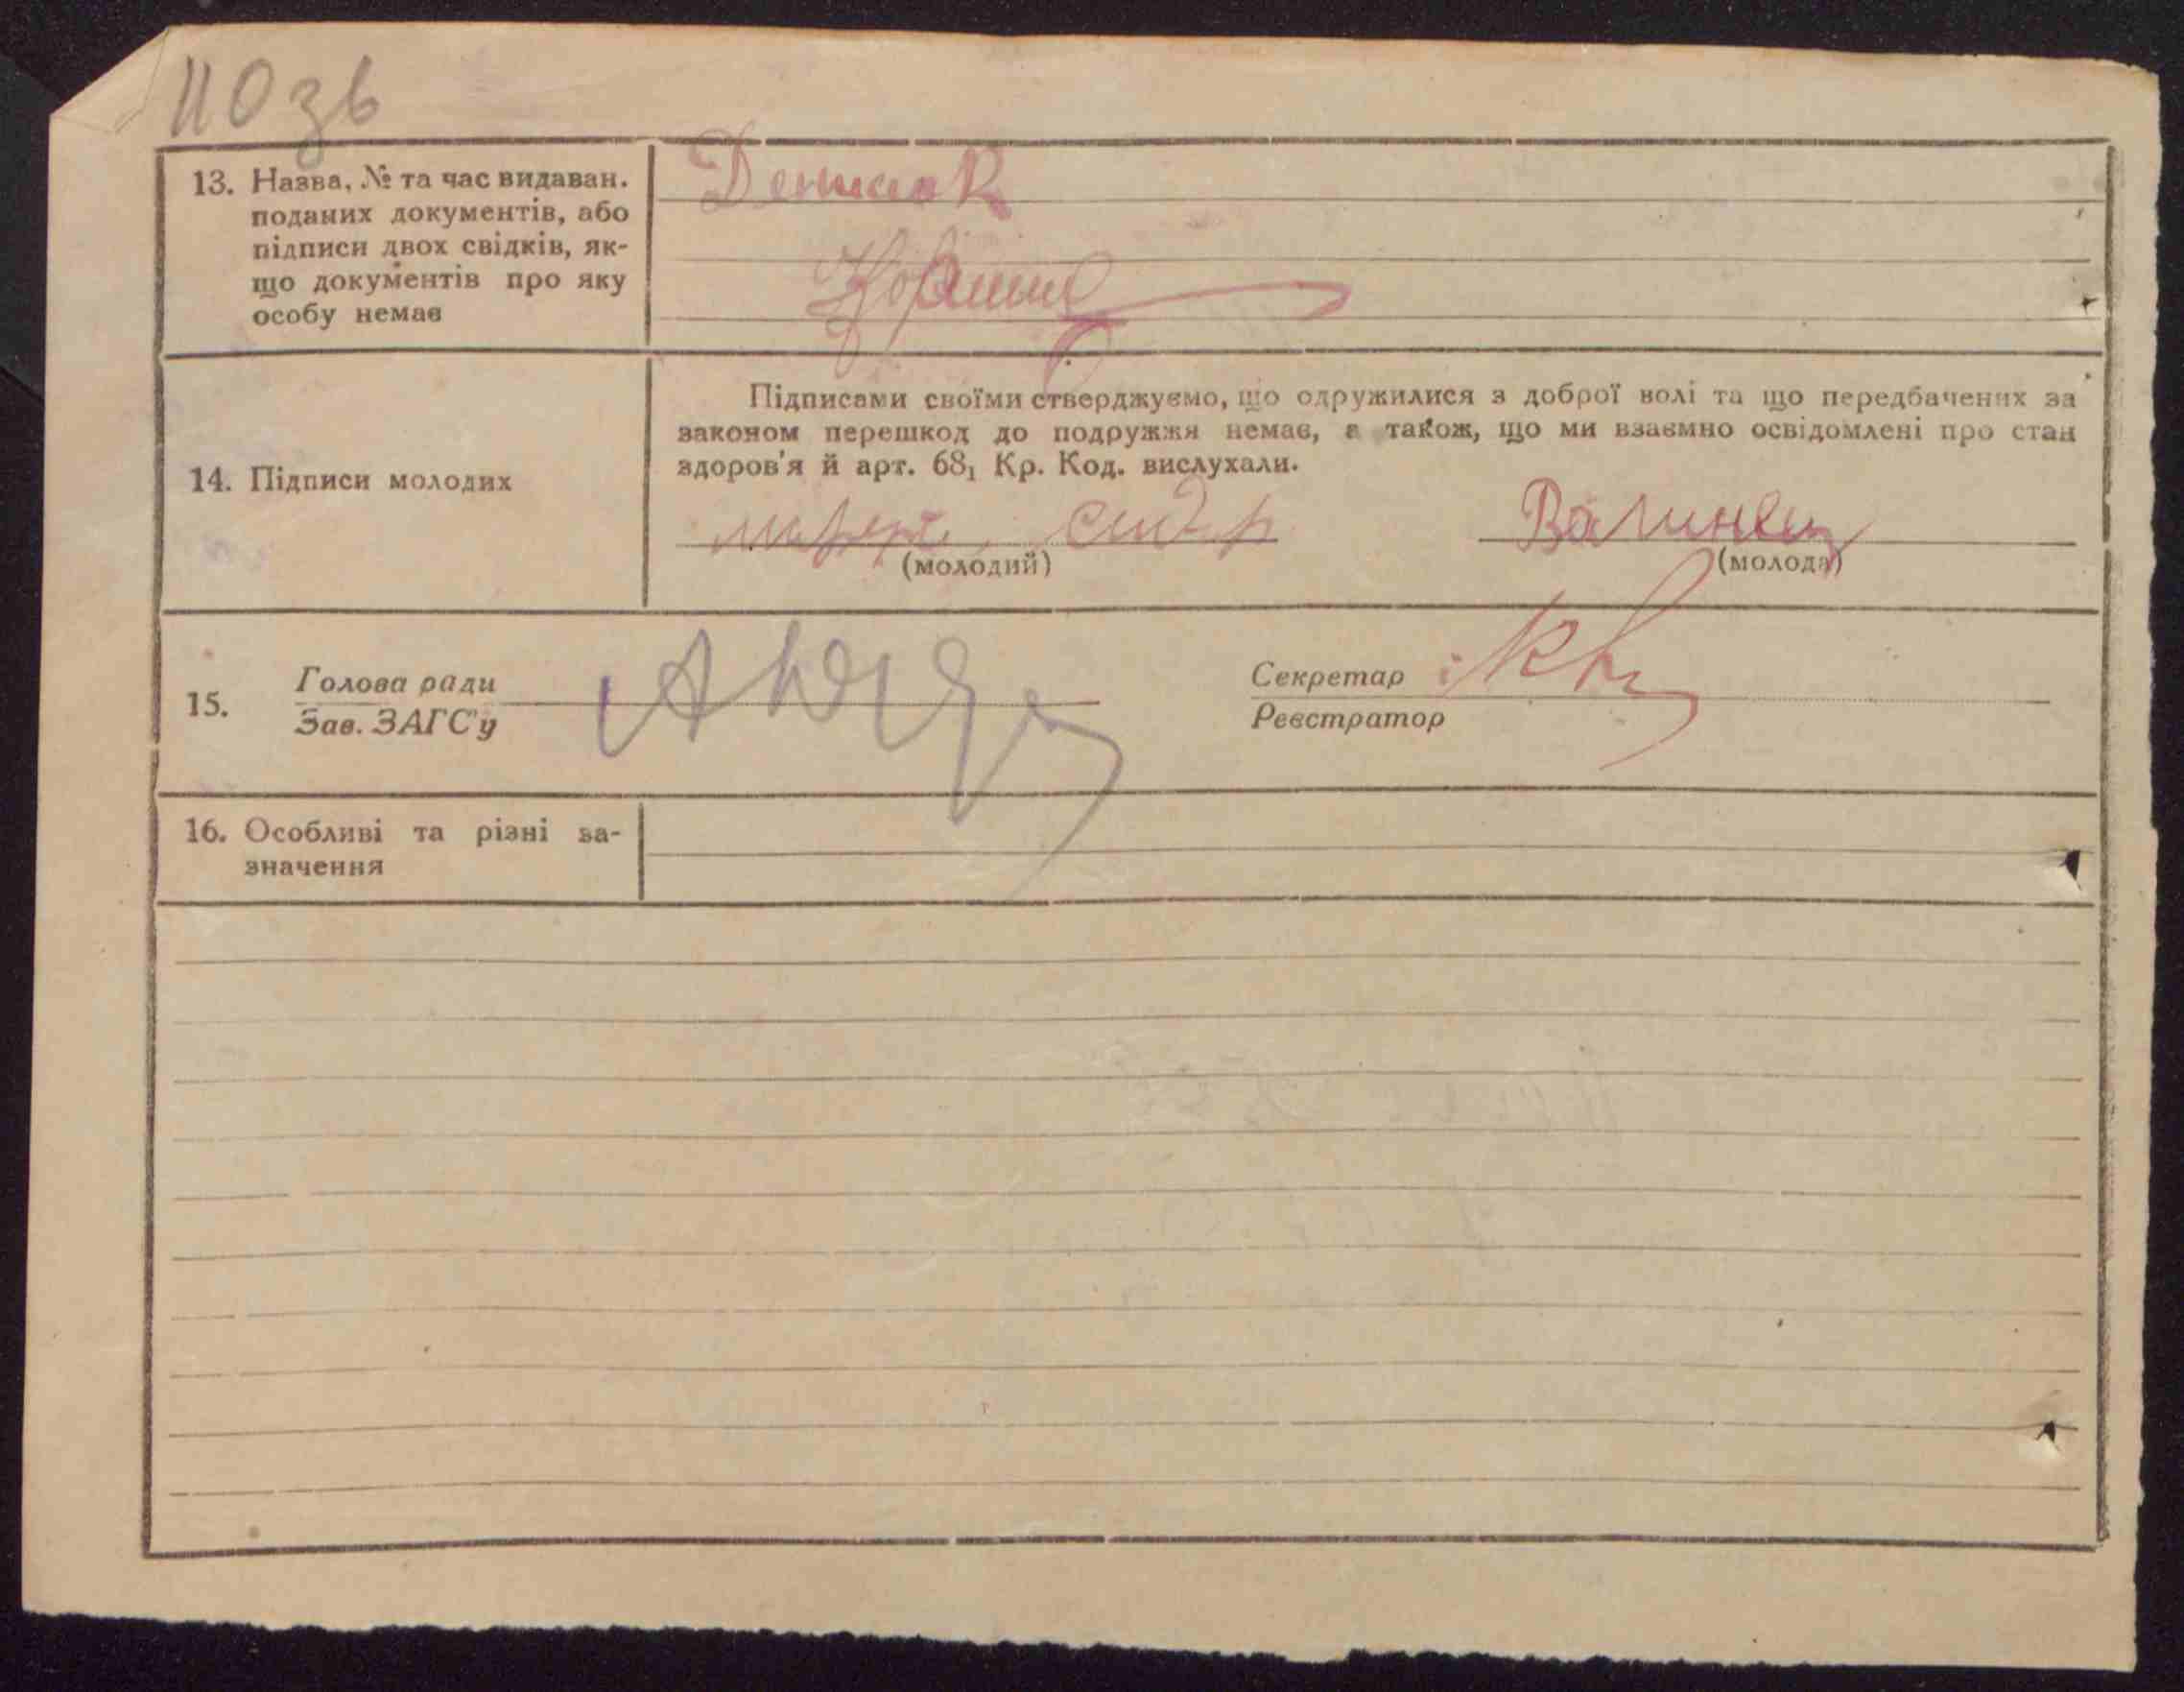 110 зв
13. Назва, № та час видаван.
поданих документів, або
підписи двох свідків, як-
що документів про яку
особу немає
14. Підписи молодих
Підписами своїми стверджуємо, що одружилися з доброї волі та що передбачених за
законом перешкод до подружжя немає, а також, що ми взаємно освідомлені про стан
здоров'я й арт. 68₁ Кр. Код. вислухали.
(молодий) (молода)
15. Голова ради
Зав. ЗАГС'у
Секретар
Реєстратор
16. Особливі та різні за-
значення